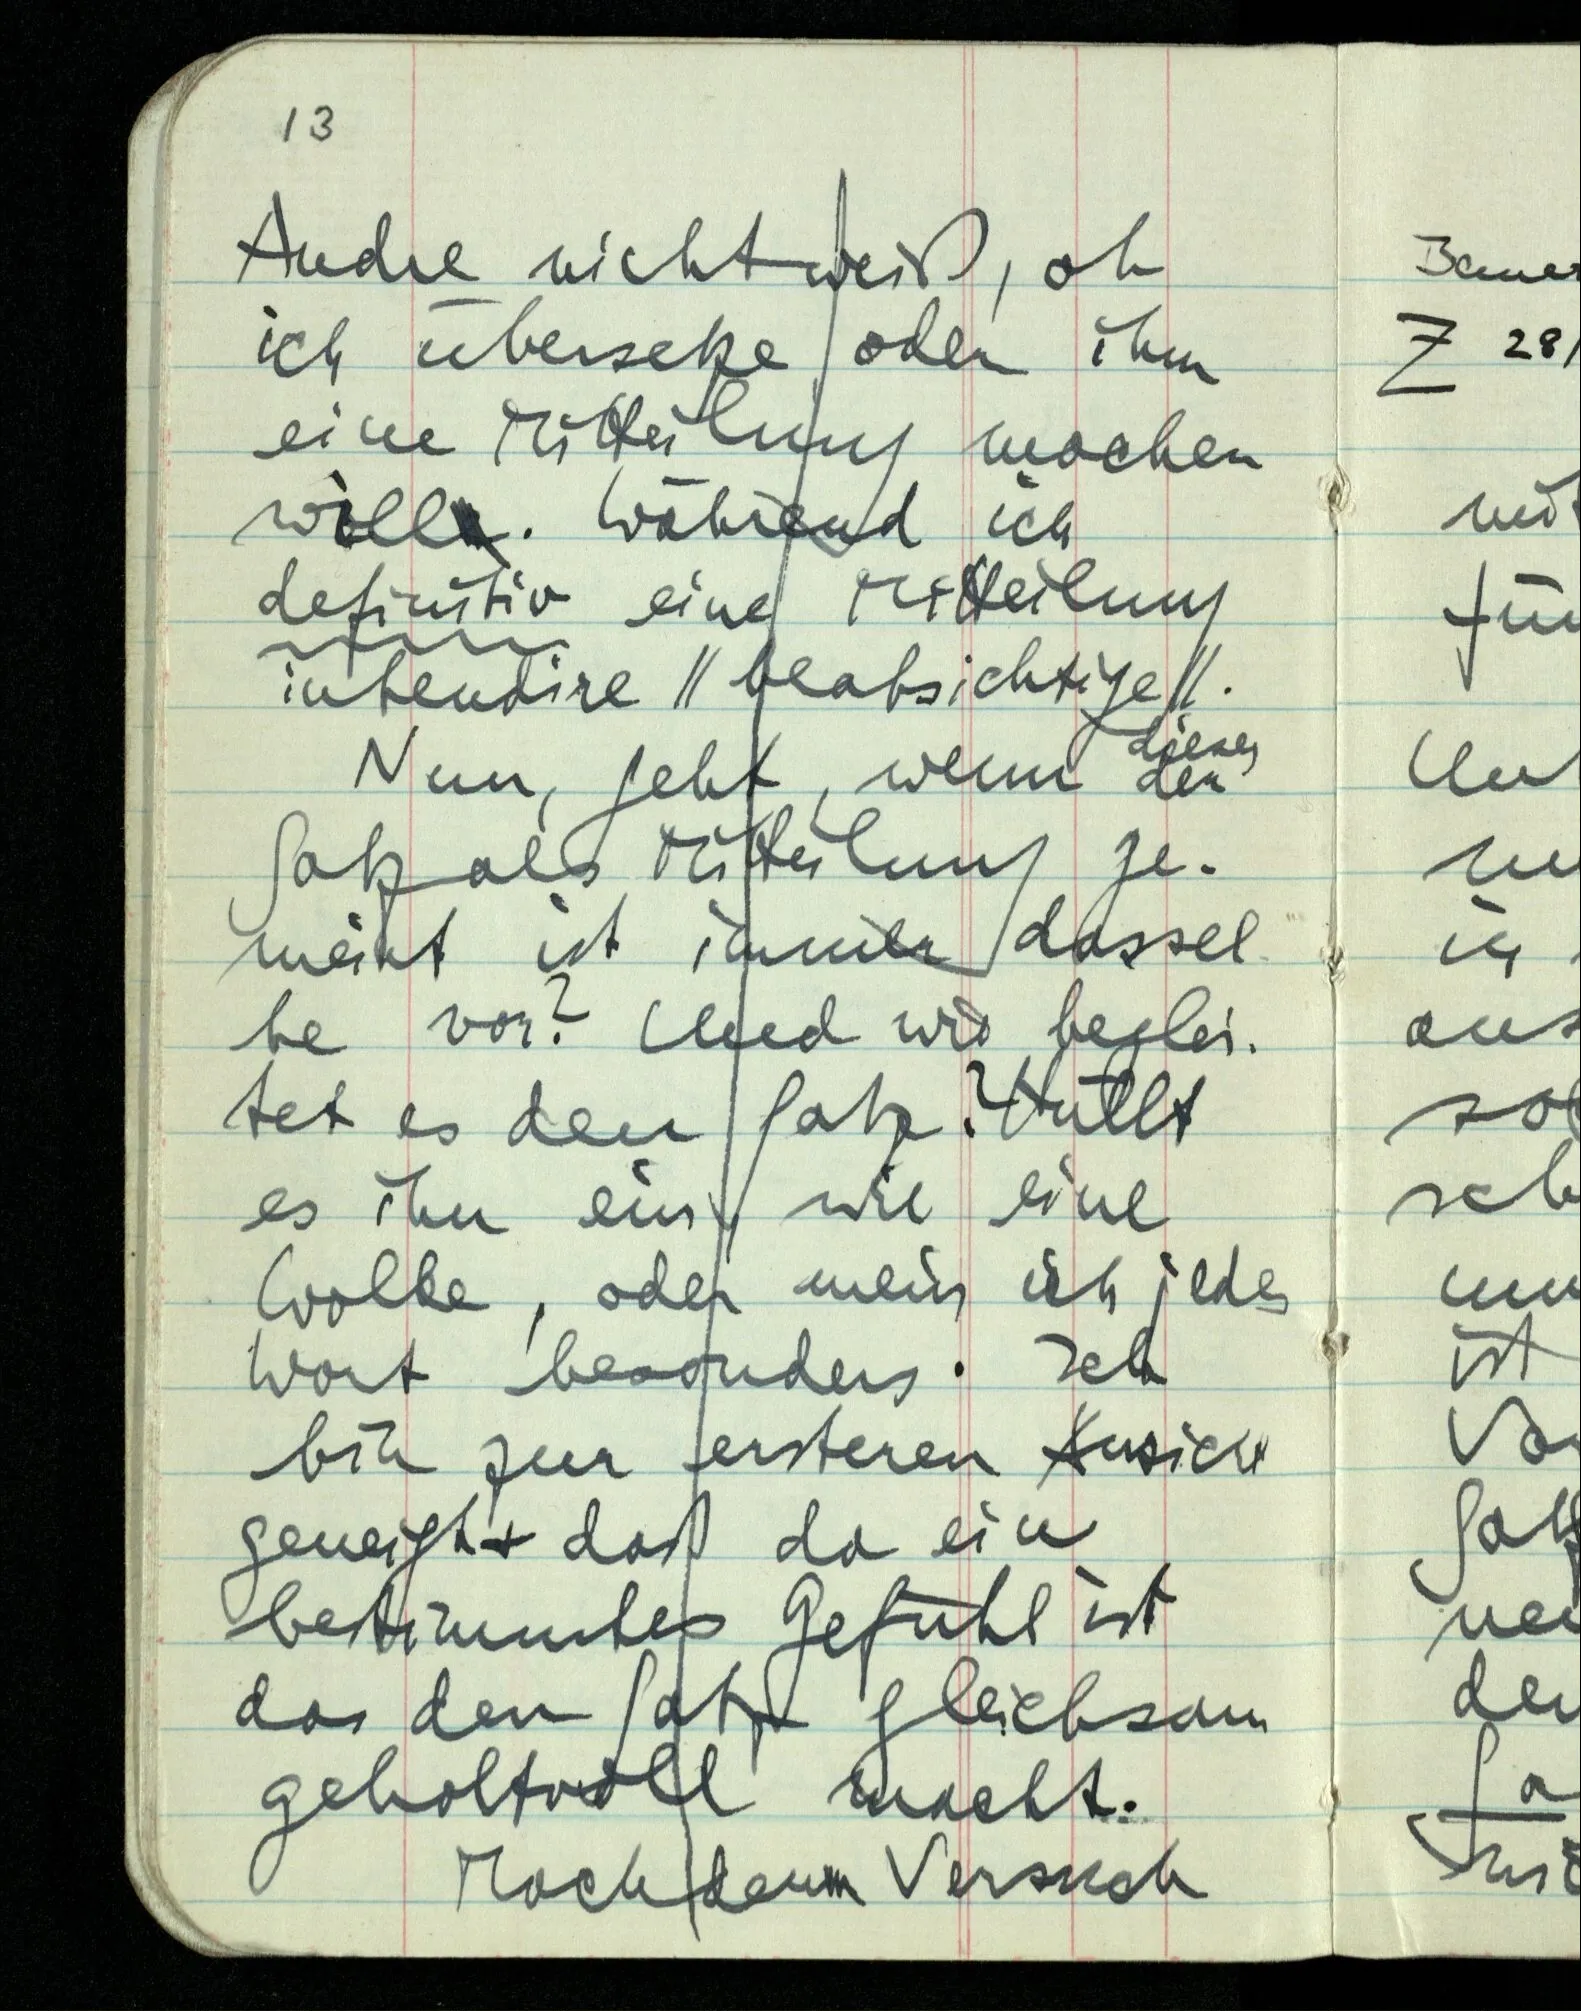 13
Andre nicht weiß, ob
ich übersetze oder ihm
eine Mitteilung machen
will. Während ich
definitiv eine Mitteilung
intendire // beabsichtige //.
Nun, geht, wenn der dieser
Satz als Mitteilung ge-
meint ist immer dassel-
be vor? Und wie beglei-
tet es den Satz? Hüllt
es ihn ein, wie eine
Wolke, oder mein ich jedes
Wort besonders. Ich
bin zur ersteren Ansicht
geneigt & daß da ein
bestimmtes Gefühl ist
das den Satz gleichsam
gehaltvoll macht.
Mach den Versuch
Z 28
für
ist